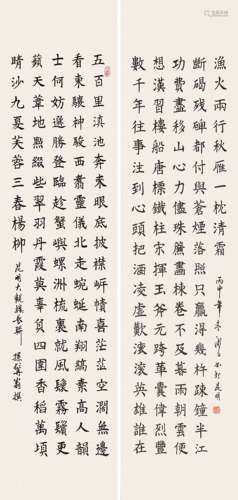 五百里滇池奔來眼底披襟岸幘喜茫茫空闊無邊
看東驤神駿西翥靈儀北走蜿蜒南翔縞素高人韻
士何妨選勝登臨趁蟹嶼螺洲梳裹就風鬟霧鬢更
蘋天葦地點綴些翠羽丹霞莫辜負四圍香稻萬頃
晴沙九夏芙蓉三春楊柳
昆明大觀樓長聯 孫髯翁撰
數千年往事注到心頭把酒凌虛歎滾滾英雄誰在
想漢習樓船唐標鐵柱宋揮玉斧元跨革囊偉烈豐
功費盡移山心力儘珠簾畫棟卷不及暮雨朝雲便
斷碣殘碑都付與蒼煙落照只贏得幾杵踈鐘半江
漁火兩行秋雁一枕清霜
丙申